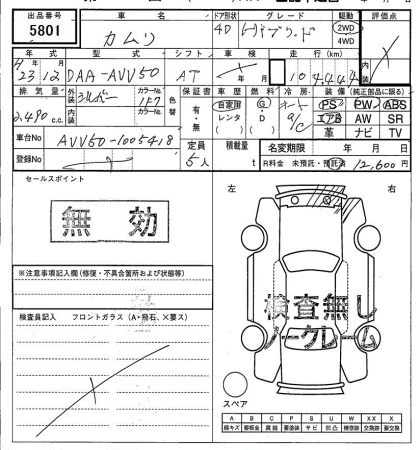 出品番号 車名 ドア形状 グレード 駆動 評価点
5801 カムリ 4D ハイブリッド 2WD
4WD
年式 型式 シフト 車検 走行(km)
H 23 12 DAA-AVV50 AT 年 月 10 4,444
排気量 外装 カラーNo. 色替 保証書 車歴 燃料 冷房 装備(純正部品に限る)
2,490 c.c. シルバー 1F7 有・無 自家用 G・D オート A/C PS PW ABS
内装 カラーNo. レンタ エアB AW SR
( ) ( ) 革 ナビ TV
車台No AVV50-1005418 定員 積載量 名変期限 年 月 日
登録No 5人 t R料金 未預託・預託済 12,600円
セールスポイント 左 右
無効
※注意事項記入欄(修復・不具合箇所および状態等)
検査員記入 フロントガラス(A・飛石、×要ス)
検査無し
ノークレーム
スペア
A B C P S U W X XX
線キズ 要板金 腐蝕 要塗装 サビ 凹凸 補修跡 交換跡 要交換